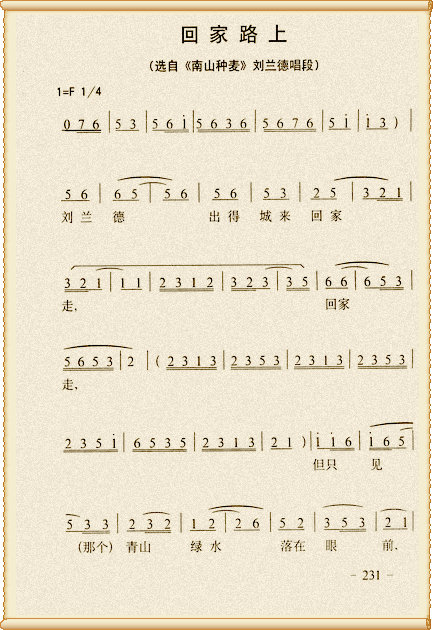 回家路上
（选自《南山种麦》刘兰德唱段）
1=F 1/4
0 7 6 | 5 3 | 5 6 i | 5 6 3 6 | 5 6 7 6 | 5 i | i 3 ) |
5 6 | 6 5 | 5 6 | 5 6 | 5 3 | 2 5 | 3 2 1 |
刘 兰 德 出 得 城 来 回 家
3 2 1 | 1 1 | 2 3 1 2 | 3 2 3 | 3 5 | 6 6 | 6 5 3 |
走, 回家
5 6 5 3 | 2 | ( 2 3 1 3 | 2 3 5 3 | 2 3 1 3 | 2 3 5 3 |
走,
2 3 5 i | 6 5 3 5 | 2 3 1 3 | 2 1 ) | i i 6 | i 6 5 |
但只 见
5 3 3 | 2 3 2 | 1 2 | 2 6 | 5 2 | 3 5 3 | 2 1 |
(那个) 青山 绿 水 落在 眼 前,
- 231 -